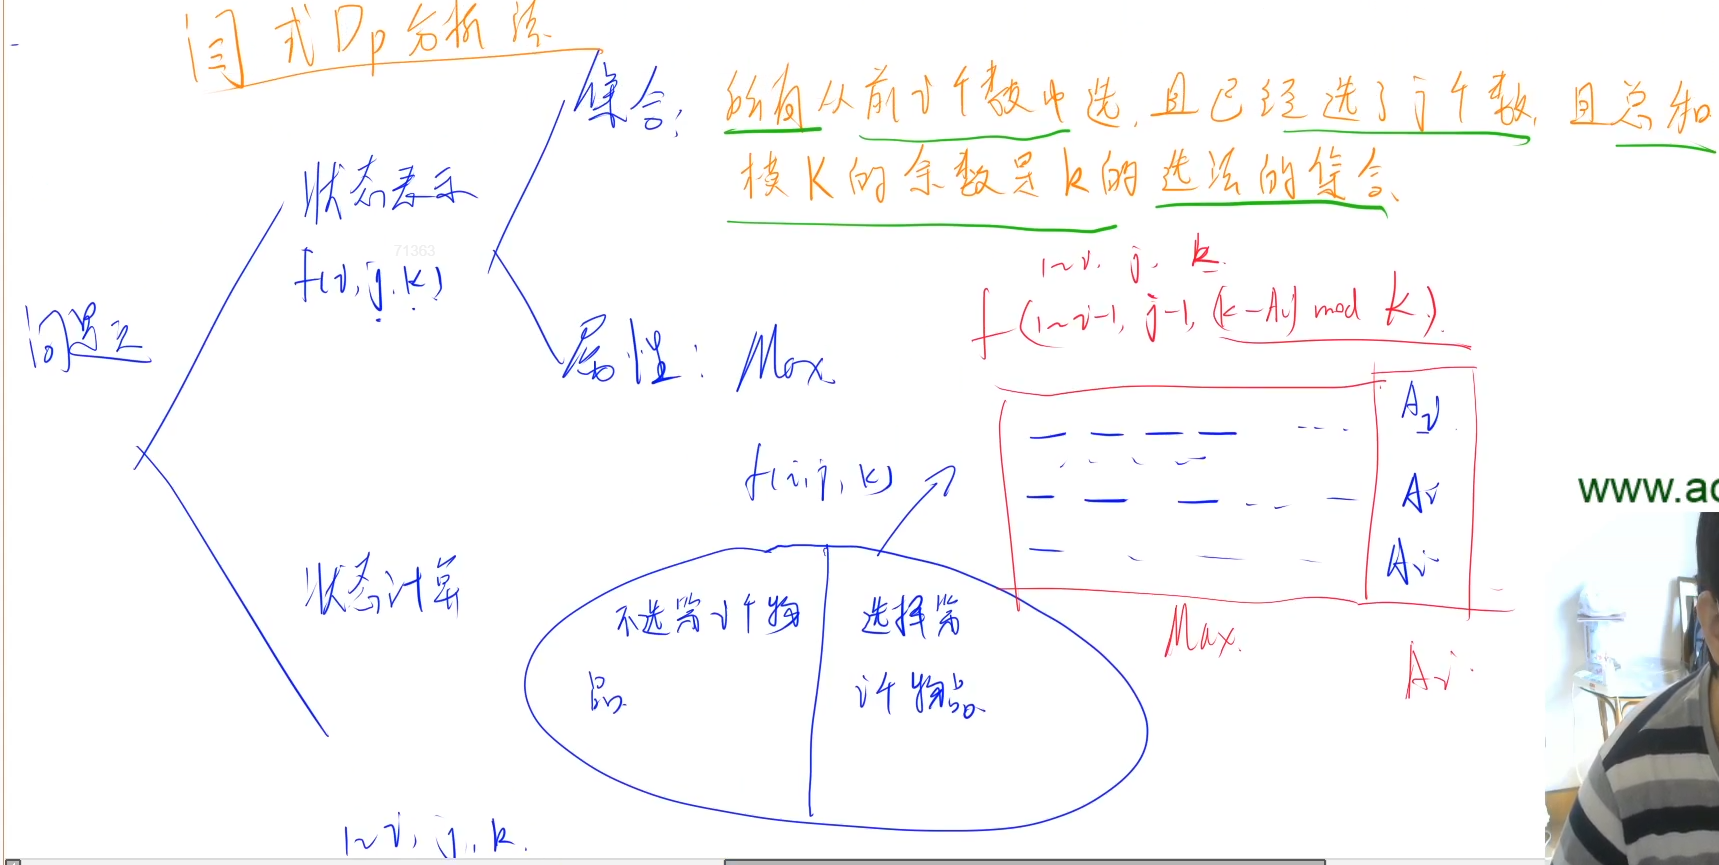 闫式Dp分析法
集合: 所有从前i个数中选,且已经选了j个数,且总和
模K的余数是k的选法的集合
状态表示
71363
f(i,j,k)
1~i, j, k
f(1~i-1, j-1, (k-Ai) mod K)
问题
属性: Max
Ai
f(i,j,k)
Ai
www.ac
Ai
状态计算
不选第i个物品
选择第
i个物品
Max.
Ai
1~i, j, k.